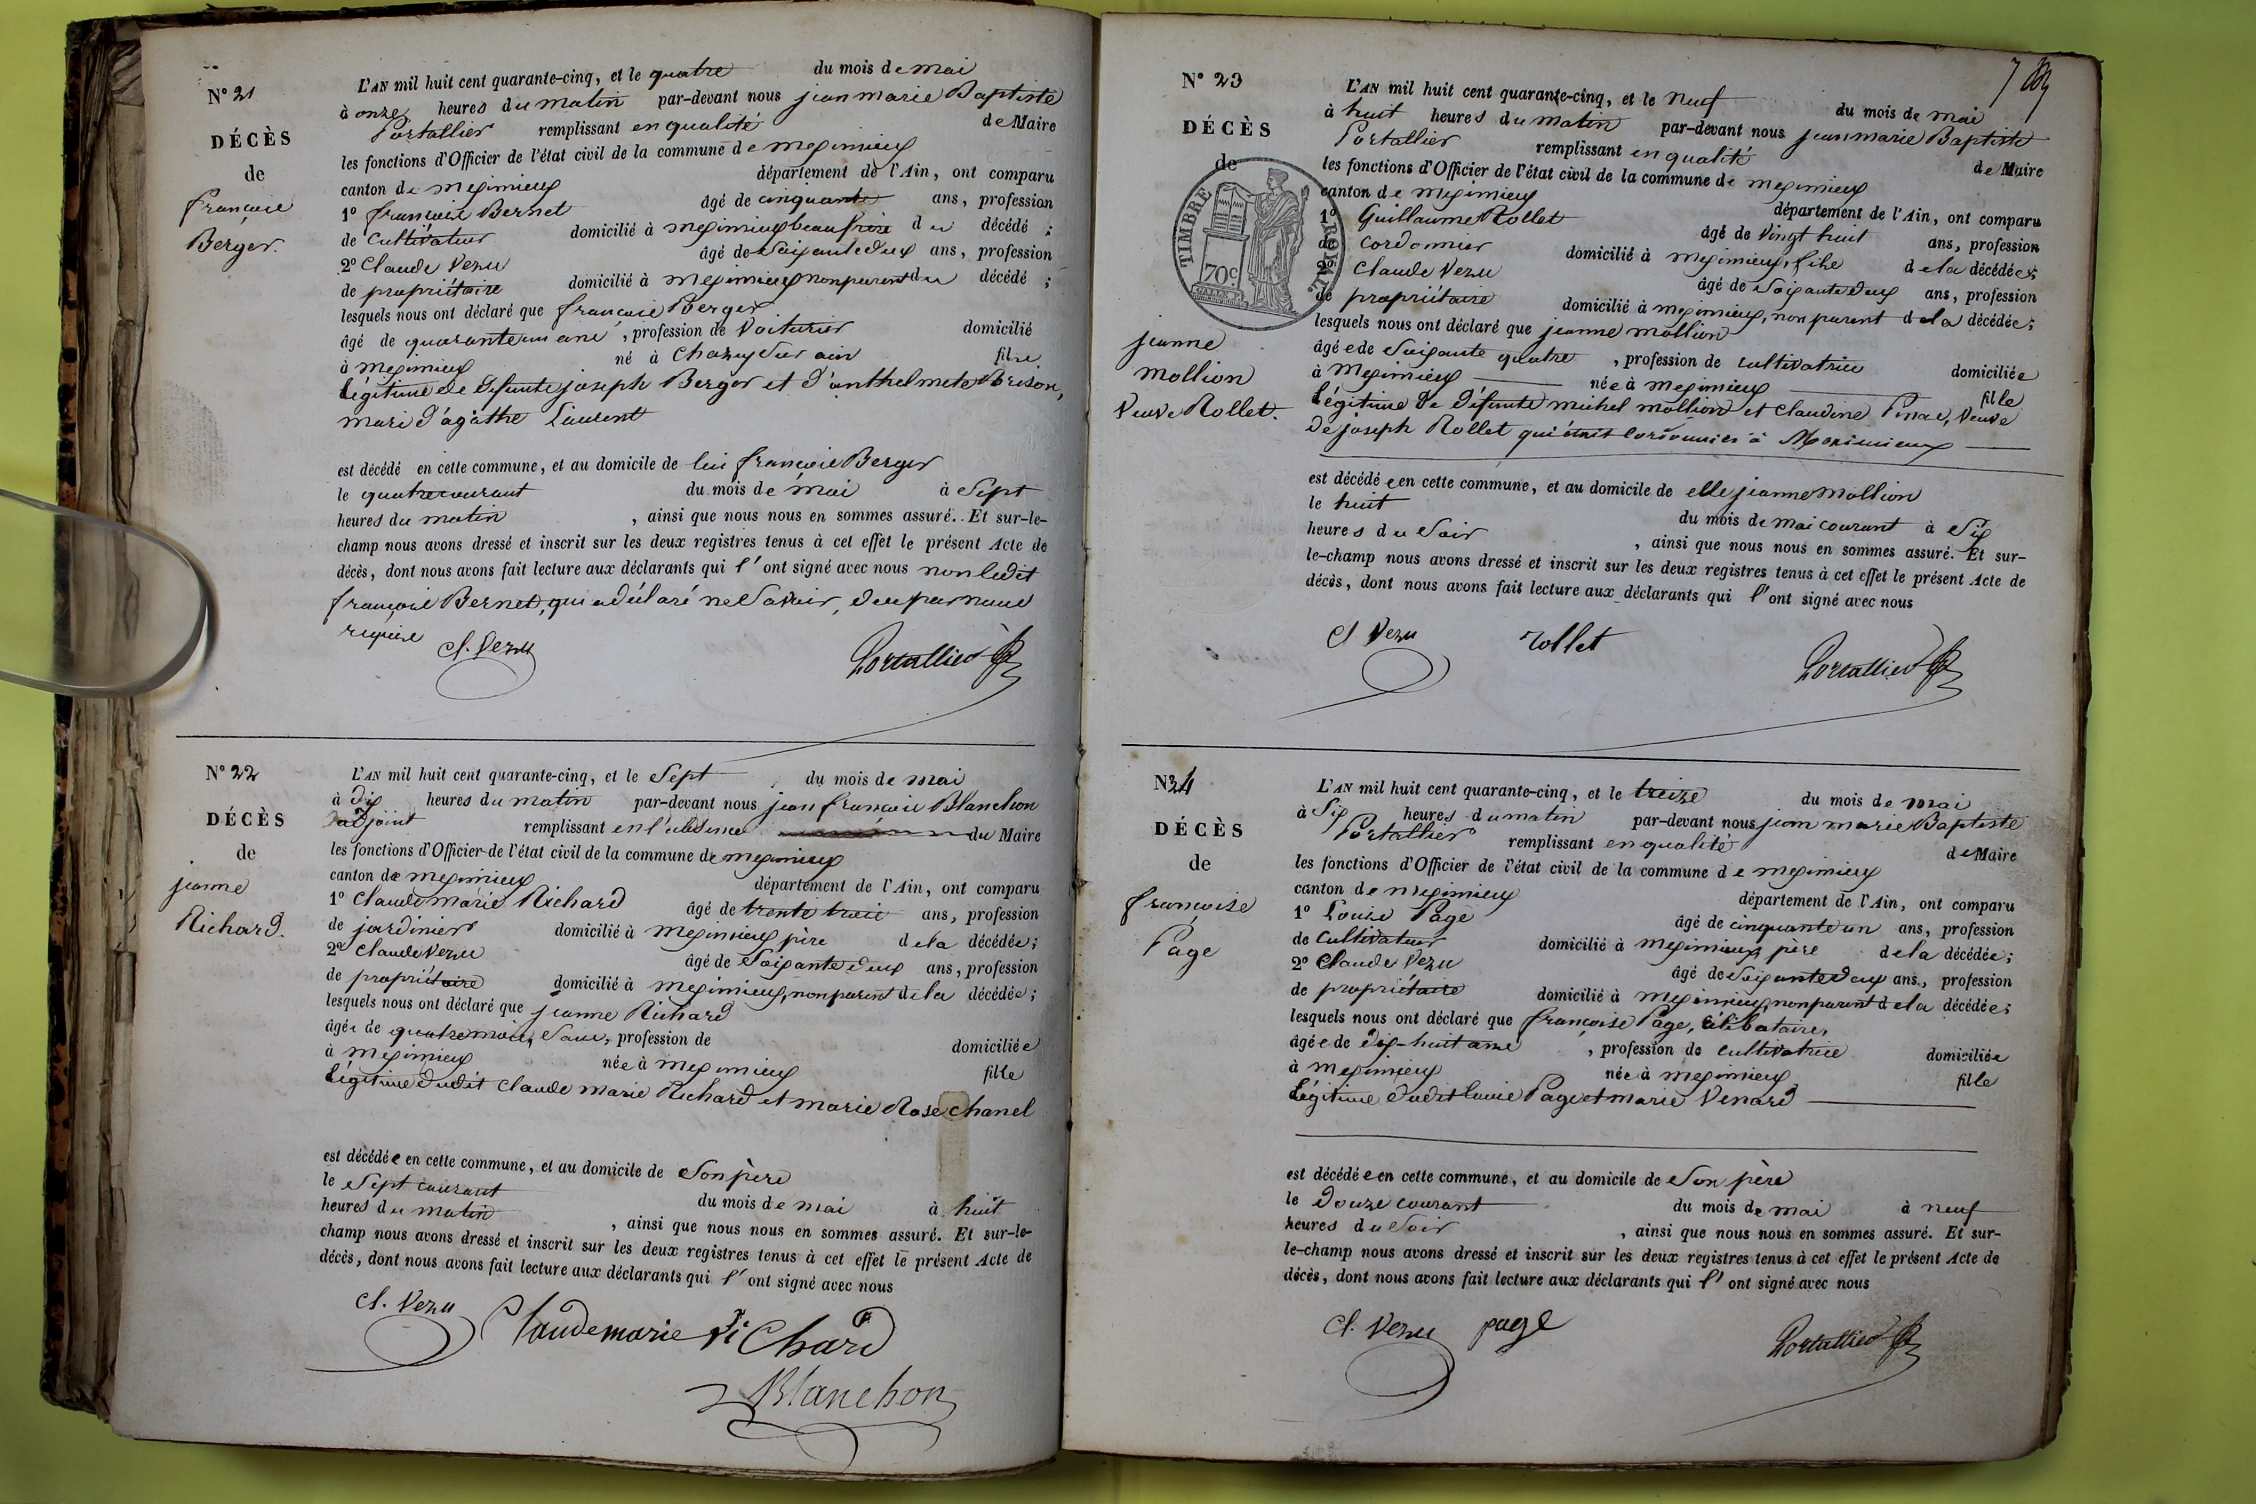 N° 21
DÉCÈS
de
françois
Berger.
L'AN mil huit cent quarante-cinq, et le quatre du mois de mai
à onze heures du matin par-devant nous jean marie Baptiste
Portallier remplissant en qualité de Maire
les fonctions d'Officier de l'état civil de la commune de meximieux
canton de meximieux département de l'Ain, ont comparu
1° françois Bernet âgé de cinquante ans, profession
de cultivateur domicilié à meximieux beaufrère du décédé ;
2° Claude Vezu âgé de Soixante deux ans, profession
de propriétaire domicilié à meximieux non parent du décédé ;
lesquels nous ont déclaré que françois Berger
âgé de quarante un ans , profession de Voiturier domicilié
à meximieux né à Chazey Sur ain fils
légitime de défunts joseph Berger et d'anthelmete Brison,
mari d'agathe Laurent
est décédé en cette commune, et au domicile de lui françois Berger
le quatre courant du mois de mai à Sept
heures du matin , ainsi que nous nous en sommes assuré. Et sur-le-
champ nous avons dressé et inscrit sur les deux registres tenus à cet effet le présent Acte de
décès, dont nous avons fait lecture aux déclarants qui l'ont signé avec nous non ledit
françois Bernet, qui a déclaré ne Savoir, de ce par nous
requis
Cl. Vezu
Portallier
N° 22
DÉCÈS
de
jeanne
Richard.
L'AN mil huit cent quarante-cinq, et le Sept du mois de mai
à dix heures du matin par-devant nous jean françois Blanchon
adjoint remplissant en l'absence du Maire
les fonctions d'Officier de l'état civil de la commune de meximieux
canton de meximieux département de l'Ain, ont comparu
1° Claude marie Richard âgé de trente trois ans, profession
de jardinier domicilié à meximieux père de la décédée ;
2° Claude Vezu âgé de Soixante deux ans, profession
de propriétaire domicilié à meximieux, non parent de la décédée ;
lesquels nous ont déclaré que jeanne Richard
âgée de quatre mois, Sans, profession de domiciliée
à meximieux née à meximieux fille
légitime dudit Claude marie Richard et marie Rose Chanel
est décédée en cette commune, et au domicile de Son père
le Sept courant du mois de mai à huit
heures du matin , ainsi que nous nous en sommes assuré. Et sur-le-
champ nous avons dressé et inscrit sur les deux registres tenus à cet effet le présent Acte de
décès, dont nous avons fait lecture aux déclarants qui l'ont signé avec nous
Cl. Vezu Claudemarie RiChard
Blanchon
N° 23
DÉCÈS
de
TIMBRE ROYAL
70 c.
jeanne
mollion
Veuve Rollet.
L'AN mil huit cent quarante-cinq, et le neuf du mois de mai
à huit heures du matin par-devant nous jean marie Baptiste
Portallier remplissant en qualité de Maire
les fonctions d'Officier de l'état civil de la commune de meximieux
canton de meximieux département de l'Ain, ont comparu
1° Guillaume Rollet âgé de Vingt huit ans, profession
de cordonnier domicilié à meximieux, fils de la décédée ;
2° Claude Vezu âgé de Soixante deux ans, profession
de propriétaire domicilié à meximieux, non parent de la décédée ;
lesquels nous ont déclaré que jeanne mollion
âgée de Soixante quatre , profession de cultivatrice domiciliée
à Meximieux née à meximieux fille
légitime de défunts michel mollion et Claudine , Veuve
de joseph Rollet qui était Cordonnier à Meximieux
est décédée en cette commune, et au domicile de elle jeanne mollion
le huit du mois de mai courant à Six
heures du Soir , ainsi que nous nous en sommes assuré. Et sur-
le-champ nous avons dressé et inscrit sur les deux registres tenus à cet effet le présent Acte de
décès, dont nous avons fait lecture aux déclarants qui l'ont signé avec nous
Cl Vezu rollet
Portallier
N° 24
DÉCÈS
de
françoise
Page
L'AN mil huit cent quarante-cinq, et le treize du mois de mai
à Six heures du matin par-devant nous jean marie Baptiste
Portallier remplissant en qualité de Maire
les fonctions d'Officier de l'état civil de la commune de meximieux
canton de meximieux département de l'Ain, ont comparu
1° Louis Page âgé de cinquante un ans, profession
de Cultivateur domicilié à meximieux père de la décédée ;
2° Claude Vezu âgé de Soixante deux ans, profession
de propriétaire domicilié à meximieux, non parent de la décédée ;
lesquels nous ont déclaré que françoise Page, célibataire,
âgée de dix-huit ans , profession de cultivatrice domiciliée
à meximieux née à meximieux fille
légitime dudit Louis Page et marie Venard
est décédée en cette commune, et au domicile de Son père
le douze courant du mois de mai à neuf
heures du Soir , ainsi que nous nous en sommes assuré. Et sur-
le-champ nous avons dressé et inscrit sur les deux registres tenus à cet effet le présent Acte de
décès, dont nous avons fait lecture aux déclarants qui l'ont signé avec nous
Cl. Vezu page
Portallier